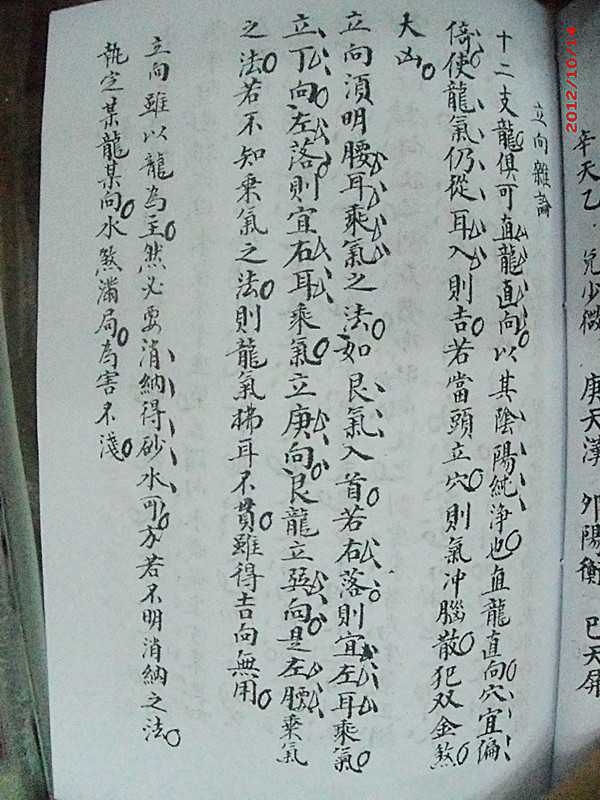 辛天乙 兌少微 庚天漢 外陽衡 巳天屏
立向雜論
十二支龍俱可直龍直向以其陰陽純浄也直龍直向穴宜偏
倚使龍氣仍從耳入則吉若當頭立穴則氣冲腦散犯双金煞
大凶
立向湏明腰耳乘氣之法如艮氣入首若右落則宜左耳乘氣
立丁向左落則宜右耳乘氣立庚向艮龍立向是左腰乗氣
之法若不知乗氣之法則龍氣拂耳不貫雖得吉向無用
立向雖以龍為主然必要消納得砂水可方若不明消納之法
執定某龍某向水煞滿局為害不淺
2012/10/14